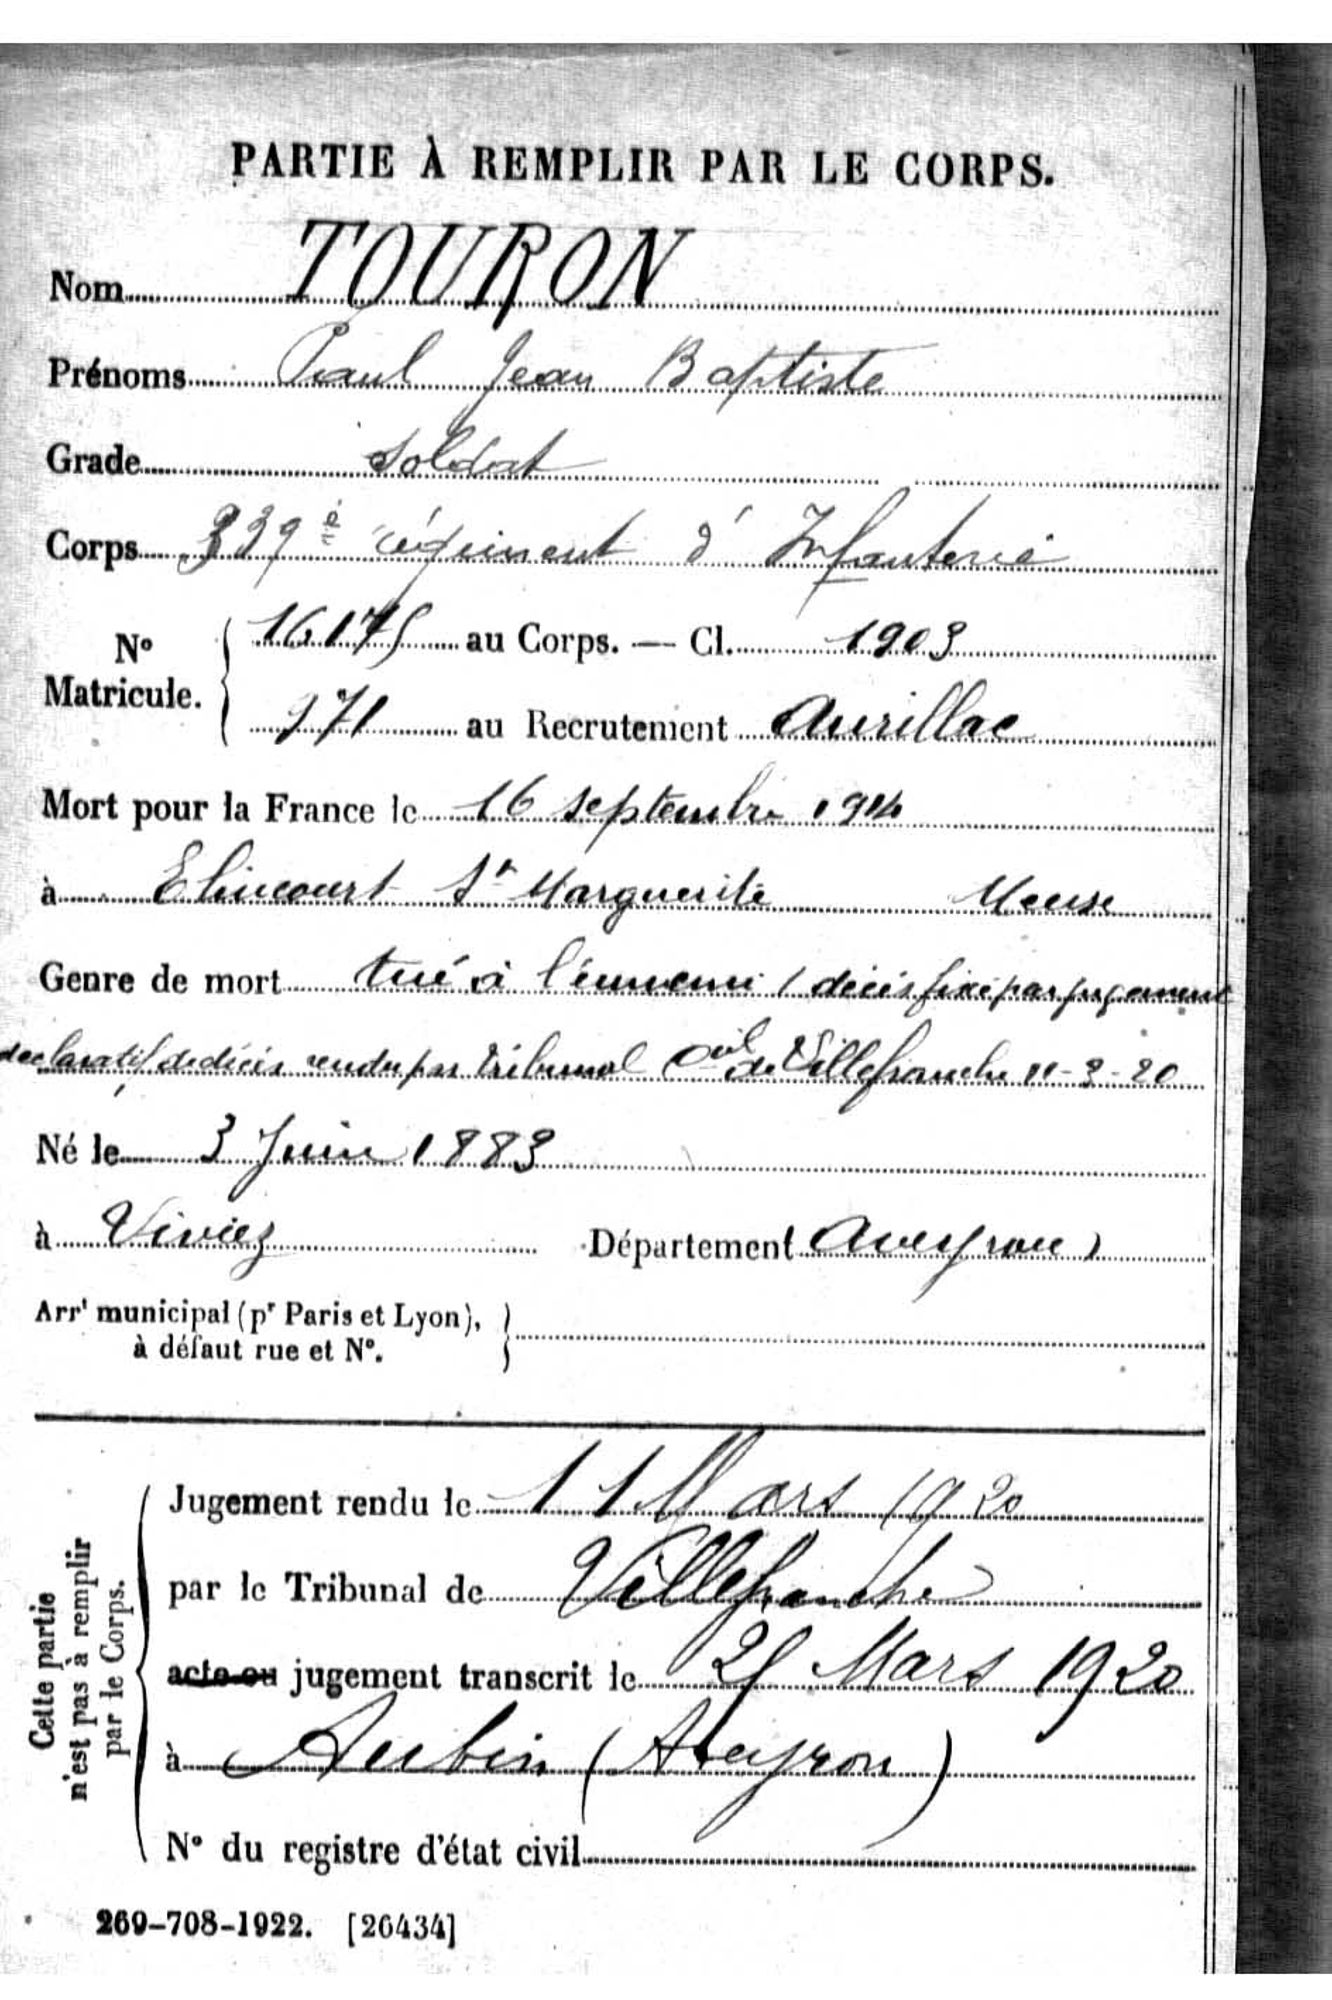 PARTIE À REMPLIR PAR LE CORPS.
Nom TOURON
Prénoms Paul Jean Baptiste
Grade Soldat
Corps 339è régiment d'Infanterie
Nº Matricule. 16175 au Corps. — Cl. 1903
971 au Recrutement Aurillac
Mort pour la France le 16 septembre 1914
à Elincourt Ste Marguerite Meuse
Genre de mort tué à l'ennemi (décès fixé par jugement
declaratif de décès rendu par tribunal civil de Villefranche 11-3-20
Né le 3 Juin 1883
à Viviez Département Aveyron)
Arrt municipal (pr Paris et Lyon),
à défaut rue et Nº.
Cette partie
n'est pas à remplir
par le Corps.
Jugement rendu le 11 Mars 1920
par le Tribunal de Villefranche
acte ou jugement transcrit le 25 Mars 1920
à Aubin (Aveyron)
Nº du registre d'état civil
269-708-1922. [26434]